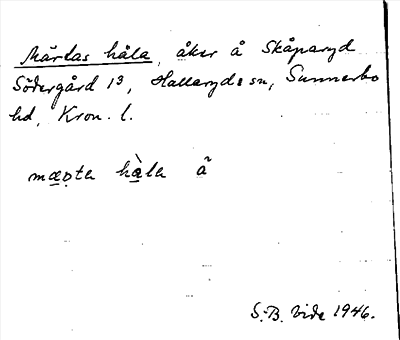 Mårdas håla, åker å Skåparyd
Södergård 1³, Hallaryds sn, Sunnerbo
hd, Kron. l.
hàla å̃
S.B. Vide 1946.